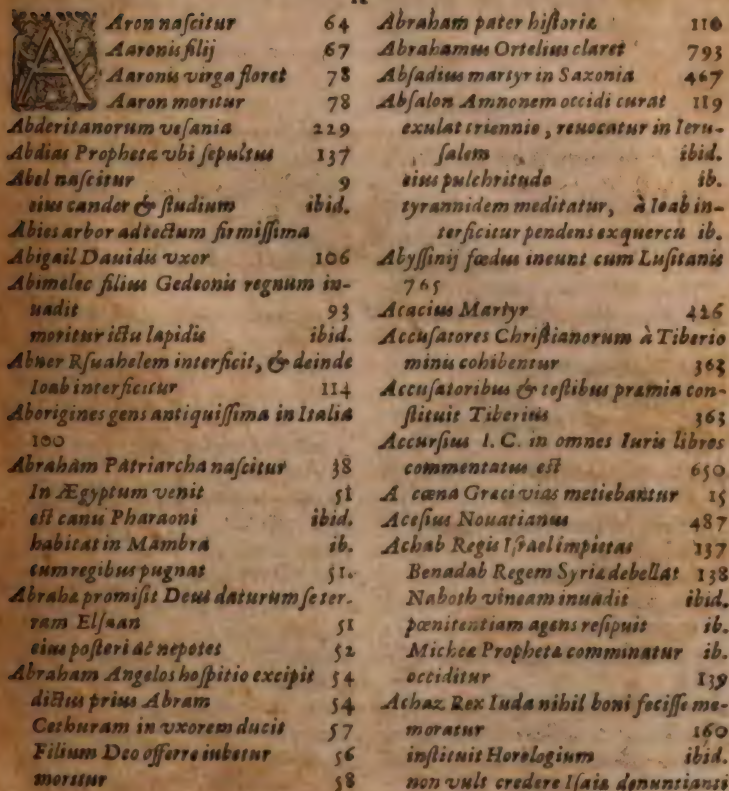 AAron naſcitur 64
Aaronis filij 67
Aaronis virga floret 78
Aaron moritur 78
Abderitanorum veſania 229
Abdias Propheta vbi ſepultus 137
Abel naſcitur 9
eius candor & ſtudium ibid.
Abies arbor ad tectum firmiſſima
Abigail Dauidis vxor 106
Abimelec filius Gedeonis regnum in-
uadit 93
moritur ictu lapidis ibid.
Abner Rſuahelem interficit, & deinde
Ioab interficitur 114
Aborigines gens antiquiſſima in Italia
100
Abraham Patriarcha naſcitur 38
In Ægyptum venit 51
eſt canus Pharaoni ibid.
habitat in Mambra ib.
cum regibus pugnat 51.
Abrahæ promiſit Deus daturum ſe ter-
ram Elſaan 51
eius poſteri ac nepotes 52
Abraham Angelos hoſpitio excipit 54
dictus prius Abram 54
Cethuram in vxorem ducit 57
Filium Deo offerre iubetur 56
moritur 58
Abraham pater hiſtoriæ 110
Abrahamus Ortelius claret 793
Abſadius martyr in Saxonia 467
Abſalon Amnonem occidi curat 119
exulat triennio, reuocatur in Ieru-
ſalem ibid.
eius pulchritudo ib.
tyrannidem meditatur, à Ioab in-
terficitur pendens ex quercu ib.
Abyſſinij fœdus ineunt cum Luſitanis
765
Acacius Martyr 426
Accuſatores Chriſtianorum à Tiberio
minis cohibentur 363
Accuſatoribus & teſtibus præmia con-
ſtituit Tiberius 363
Accurſius I. C. in omnes Iuris libros
commentatus eſt 650
A cœna Græci vias metiebantur 15
Aceſius Nouatianus 487
Achab Regis Iſrael impietas 137
Benadab Regem Syriæ debellat 138
Naboth vineam inuadit ibid.
pœnitentiam agens reſipuit ib.
Michea Propheta comminatur ib.
occiditur 139
Achaz Rex Iuda nihil boni feciſſe me-
moratur 160
inſtituit Horologium ibid.
non vult credere Iſaiæ denuntianti